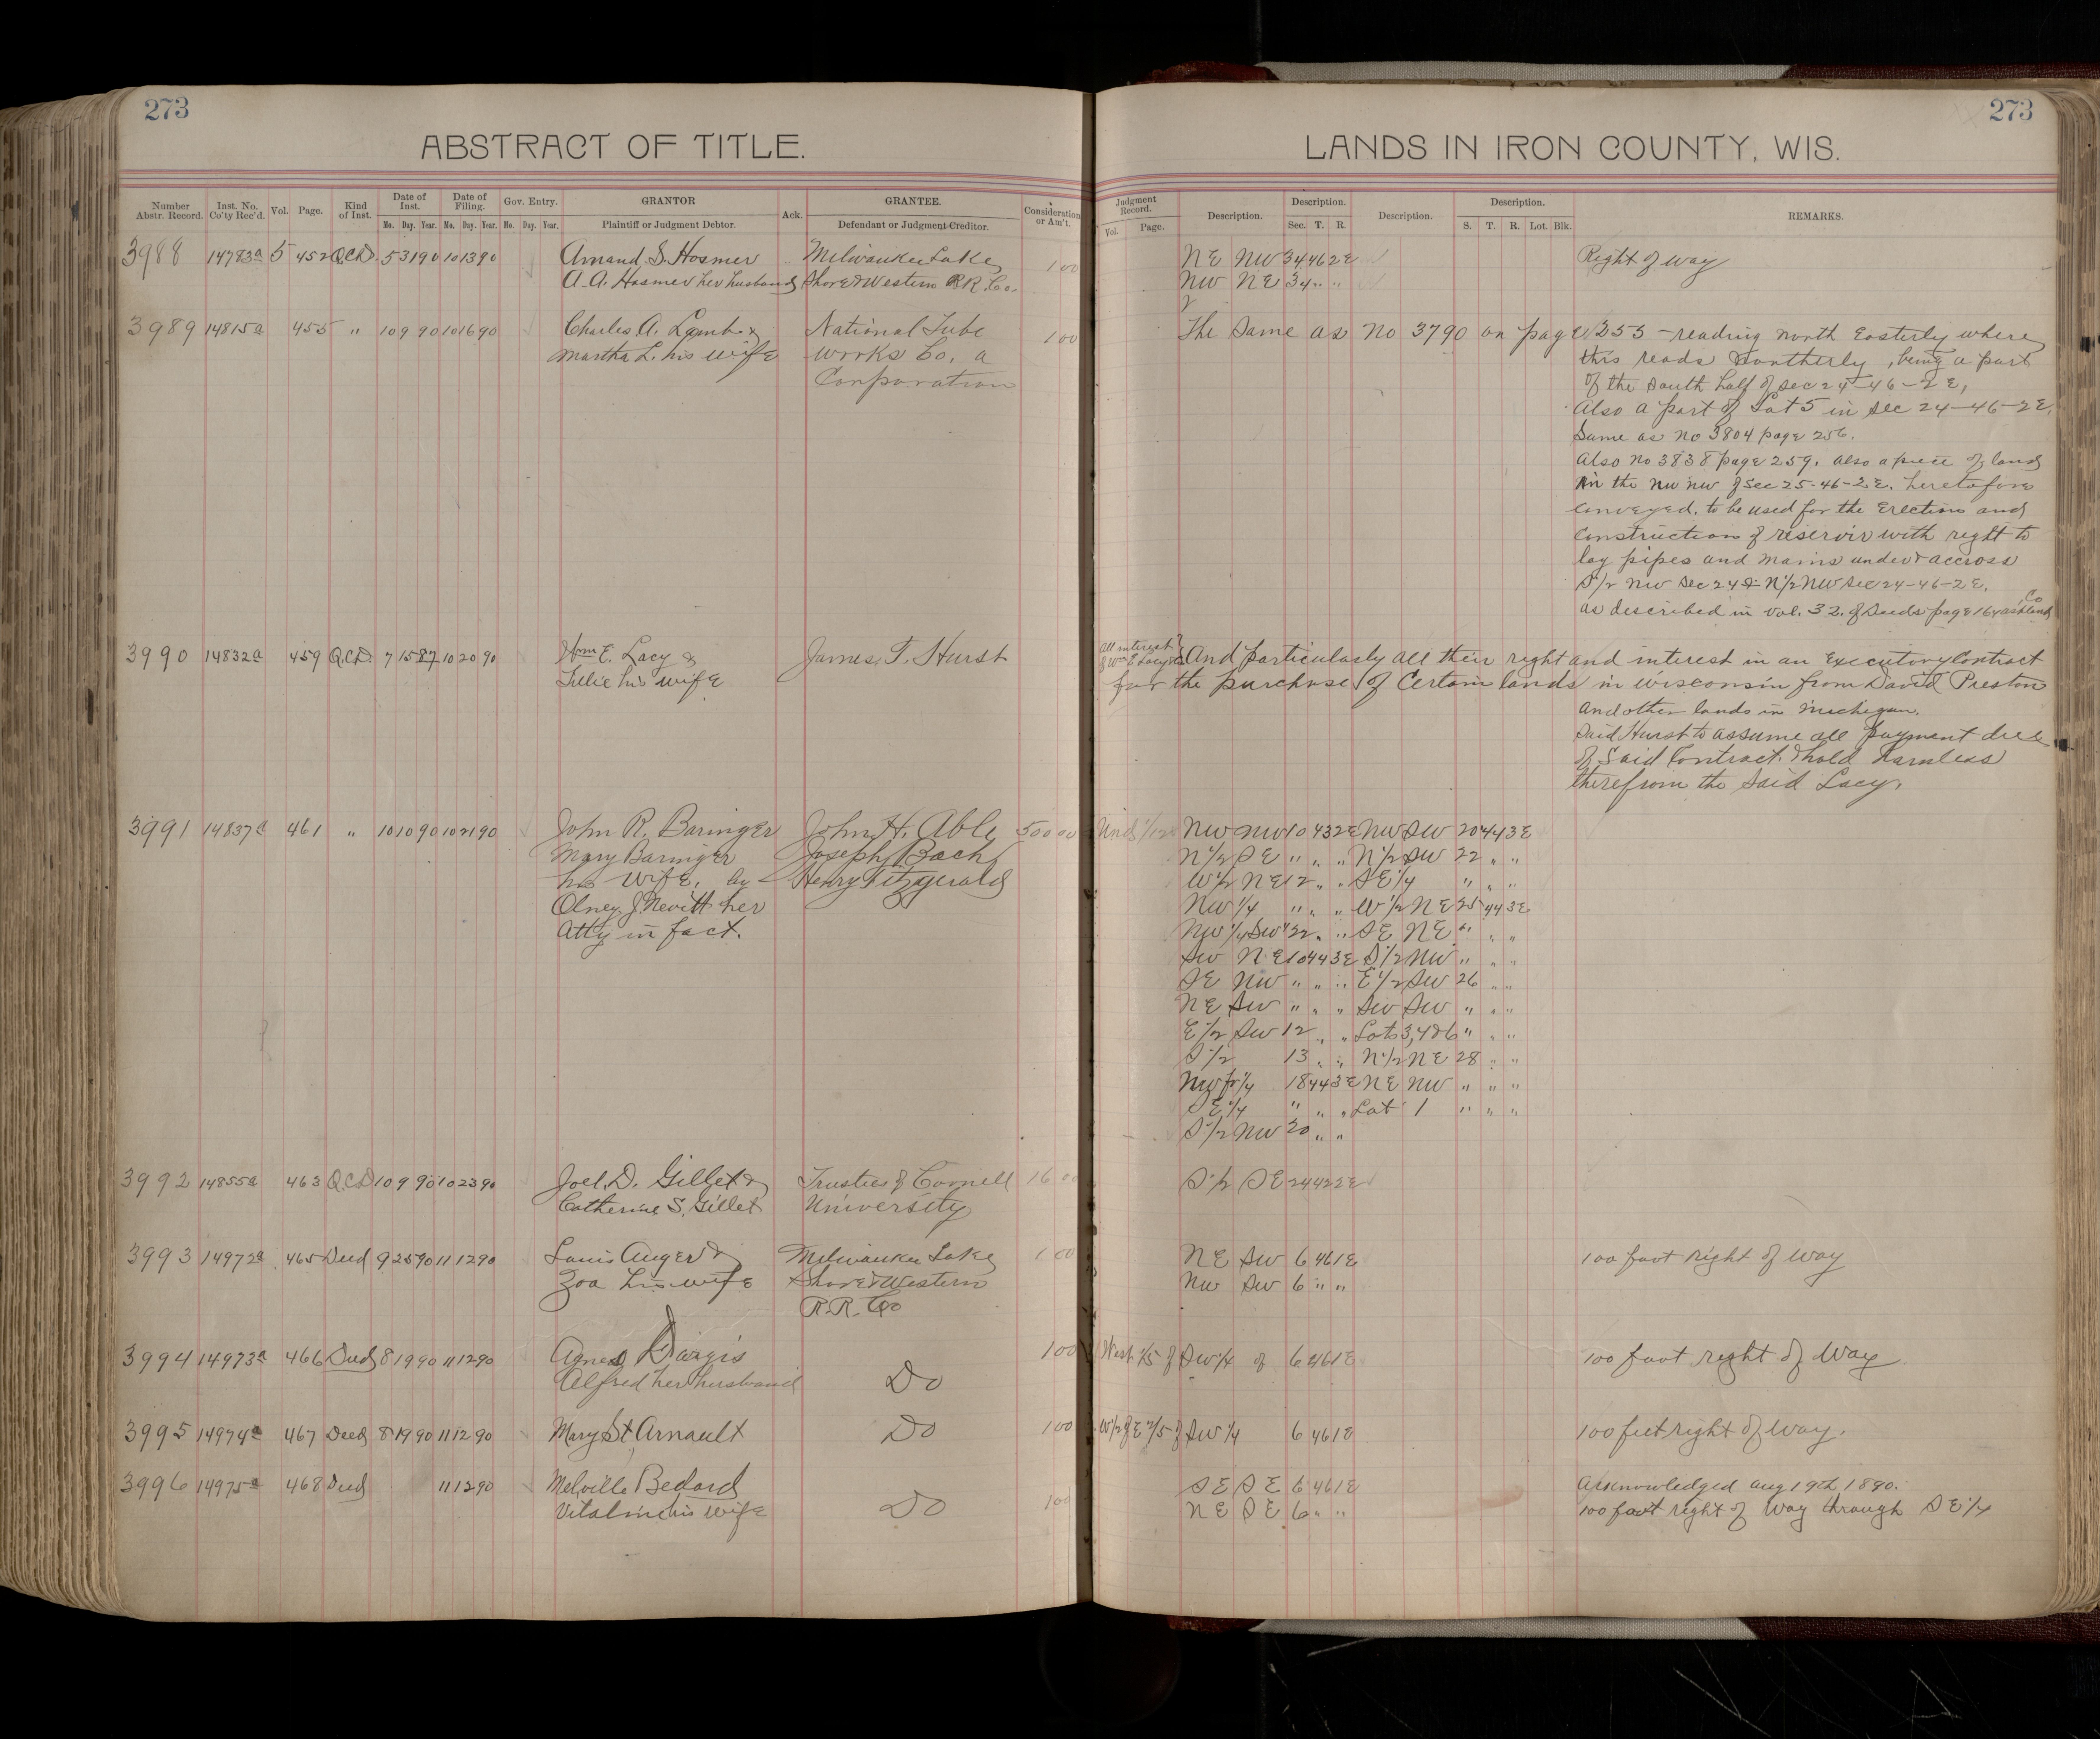 273
273
ABSTRACT OF TITLE.
LANDS IN IRON COUNTY, WIS.
Number Abstr. Record. Inst. No. Co'ty Rec'd. Vol. Page. Kind of Inst. Date of Inst. Mo. Day. Year. Date of Filing. Mo. Day. Year. Gov. Entry. Mo. Day. Year. GRANTOR Plaintiff or Judgment Debtor. Ack. GRANTEE. Defendant or Judgment Creditor. Consideration or Am't.
Judgment Record. Vol. Page. Description. Description. Sec. T. R. Description. Description. S. T. R. Lot. Blk. REMARKS.
3988 14783a 5 452 Q.C.D. 5 31 90 10 13 90 Amand S. Hosmer Milwaukee Lake 1 00 NE NW 34 46 2E Right of way
A. A. Hosmer her husband Shore & Western R.R. Co. NW NE 34 " "
3989 14815a 455 " 10 9 90 10 16 90 Charles A. Lamb & National Tube 1 00 The Same as No 3790 on page 255 - reading north Easterly where
Martha L. his wife Works Co. a this reads Southerly, being a part
Corporation of the South half of Sec 24-46-2E,
Also a part of Lot 5 in Sec 24-46-2E,
Same as No 3804 page 256.
Also No 3838 page 259. also a piece of land
in the NW NW of Sec 25-46-2E. heretofore
conveyed. to be used for the Erection and
Construction of reservoir with right to
lay pipes and mains under & accross
S 1/2 NW Sec 24 & N 1/2 NW Sec 24-46-2E.
as described in Vol. 32. of Deeds page 164 Ashland Co
3990 14832a 459 Q.C.D. 7 15 87 10 20 90 Wm E. Lacy & James T. Hurst All interest of Wm E Lacy And particularly all their right and interest in an Executory Contract
Lillie his wife for the purchase of Certain lands in Wisconsin from David Preston
and other lands in Michigan.
Said Hurst to assume all payment due
of Said Contract & hold harmless
therefrom the said Lacy.
3991 14837a 461 " 10 10 90 10 21 90 John R. Baringer John H. Able 500 00 Und 1/12 NW NW 10 43 2E NW SW 20 44 3E
Mary Baringer Joseph Bach N 1/2 SE " " " N 1/2 SW 22 " "
his wife, by Henry Fitzgerald W 1/2 NE 12 " " SE 1/4 " " "
Olney J. Nevitt her NW 1/4 " " " W 1/2 NE 25 44 3E
Atty in fact. NW 1/4 SW 22 " " SE NE " " "
SW NE 10 44 3E S 1/2 NW " " "
SE NW " " " E 1/2 SW 26 " "
NE SW " " " SW SW " " "
E 1/2 SW 12 " " Lots 3, 4 & 6 " " "
S 1/2 13 " " N 1/2 NE 28 " "
NW fr 1/4 18 44 3E NE NW " " "
SE 1/4 " " " Lot 1 " " "
S 1/2 NW 20 " "
3992 14855a 463 Q.C.D 10 9 90 10 23 90 Joel D. Gillet & Trustees of Cornell 16 00 S 1/2 SE 24 42 2E
Catherine S. Gillet University
3993 14972a 465 Deed 9 25 90 11 12 90 Louis Auger & Milwaukee Lake 1 00 NE SW 6 46 1E 100 foot right of way
Zoa his wife Shore & Western NW SW 6 " "
R.R. Co
3994 14973a 466 Deed 8 19 90 11 12 90 Agnes Dargis 1 00 West 1/5 of SW 1/4 of 6 46 1E 100 foot right of Way
Alfred her husband Do
3995 14974a 467 Deed 8 19 90 11 12 90 Mary St Arnault Do 1 00 W 1/2 of E 2/5 of SW 1/4 6 46 1E 100 feet right of Way.
3996 14975a 468 Deed 11 12 90 Melville Bedard 1 00 SE SE 6 46 1E Acknowledged Aug 19th 1890.
Vitaline his wife Do NE SE 6 " " 100 foot right of Way through SE 1/4